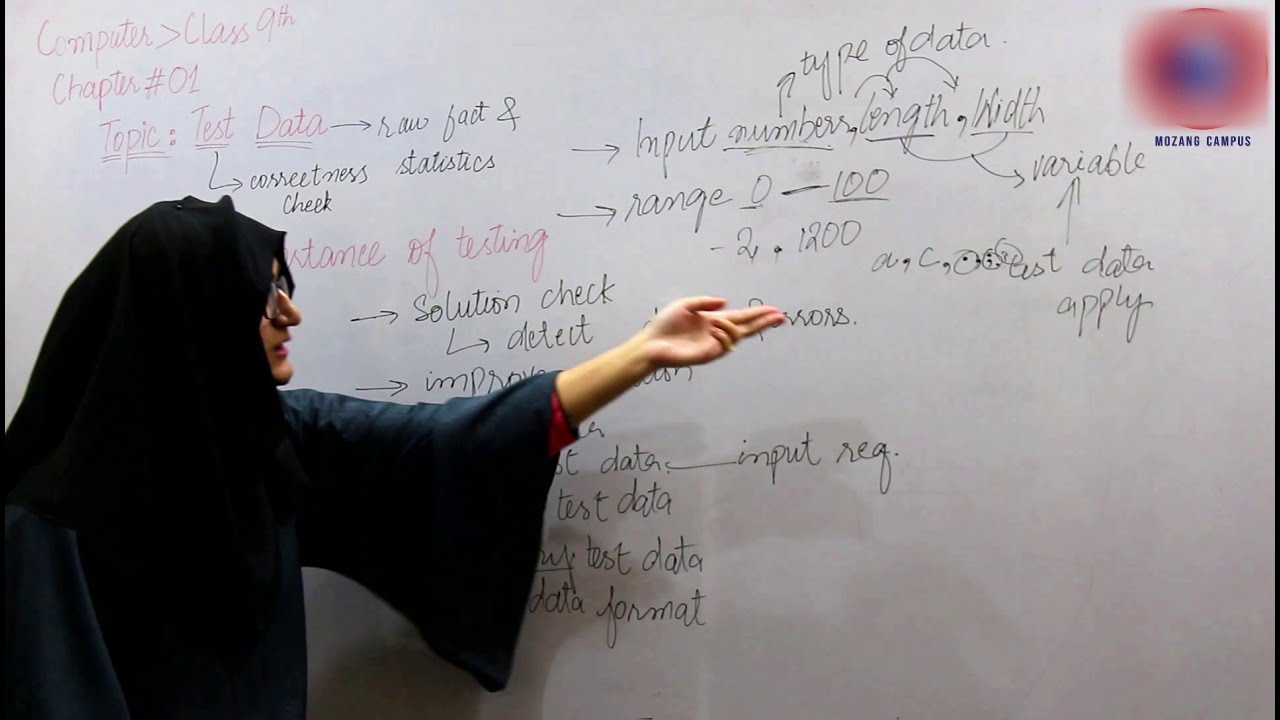 Computer > Class 9th
Chapter # 01
Topic : Test Data → raw fact &
statistics
↳ correctness
check
of testing
→ Solution check
↳ detect
errors.
→ improve
data. — input req.
test data
test data
data format
type of data.
→ Input numbers, length, Width
→ variable
→ range 0 — 100
-2, 1200
a, c,
test data
apply
MOZANG CAMPUS